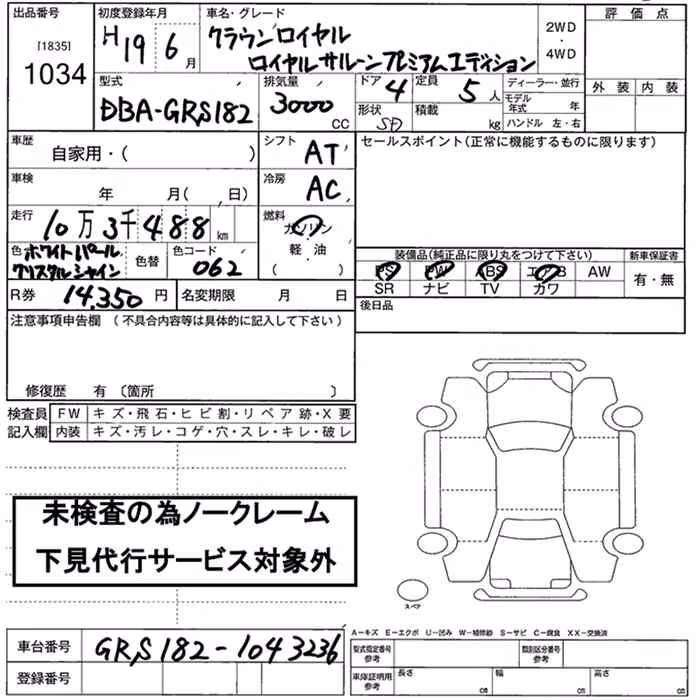 出品番号 初度登録年月 車名・グレード 評価点
[1835]
1034
H19 6月
クラウンロイヤル
ロイヤルサルーンプレミアムエディション
2WD
・
4WD
外装 内装
型式
DBA-GRS182
排気量
3000
CC
ドア 4
形状 SD
定員 5人
積載 kg
ディーラー・並行
モデル年式 年
ハンドル 左・右
車歴
自家用・( )
シフト AT
セールスポイント(正常に機能するものに限ります)
車検 年 月( 、日)
冷房 AC
走行 10万3千488km
燃料
ガソリン
軽・油
( )
色 ホワイトパール
クリスタルシャイン
色替
色コード
062
装備品(純正品に限り丸をつけて下さい)
新車保証書
PS PW ABS エアB AW
SR ナビ TV カワ
有・無
R券 14,350円
名変期限 月 日
後日品
注意事項申告欄(不具合内容等は具体的に記入して下さい)
修復歴 有〔箇所 〕
検査員 FW キズ・飛石・ヒビ割・リペア跡・X要
記入欄 内装 キズ・汚レ・コゲ・穴・スレ・キレ・破レ
未検査の為ノークレーム
下見代行サービス対象外
スペア
A−キズ E−エクボ U−凹み W−補修跡 S−サビ C−腐食 XX−交換済
車台番号 GRS182-1043236
登録番号
型式指定番号
参考
類別区分番号
参考
車庫証明用
参考
長さ cm
幅 cm
高さ cm